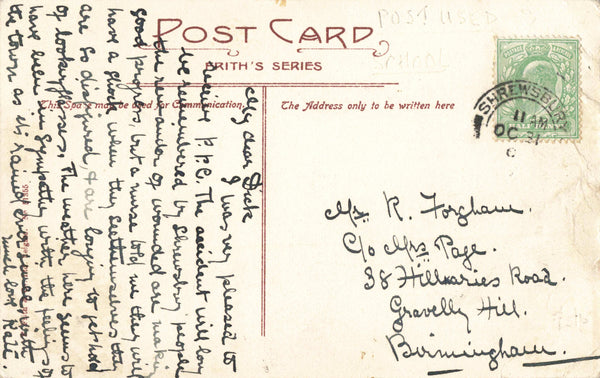 POST USED
SCHOOL
POST CARD
FRITH'S SERIES
This Space may be used for Communication.
The Address only to be written here
SHREWSBURY
11 AM
OC 31
My dear Dick
I was very pleased to
receive P.P.C. The accident will long
be remembered by Shrewsbury people
the remainder of wounded are making
good progress, but a nurse told me they will
have a shock when they see themselves they
are so disfigured & are longing to get hold
of lookingglasses. The weather here seems to
have been in sympathy with the feelings of
the town as it's rained ever since with
much love Kate.
Mr. R. Forgham.
C/o Mrs Page.
38 Hillaries Road.
Gravelly Hill.
Birmingham.